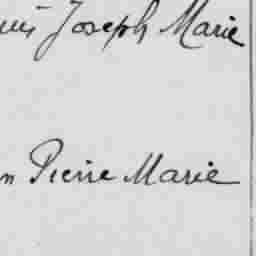 uis Joseph Marie
n Pierre Marie